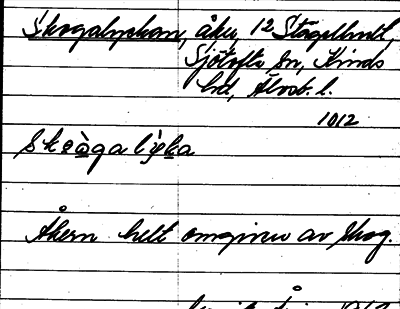 Skogalyckan, åker, 12 Stågelhult,
Sjötofta sn, Kinds
hd, Älvsb. l.
1012
Åkern helt omgiven av skog.